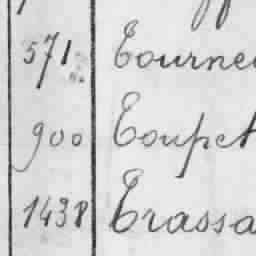 571 Tourne
900 Toupet
1438 Trassa